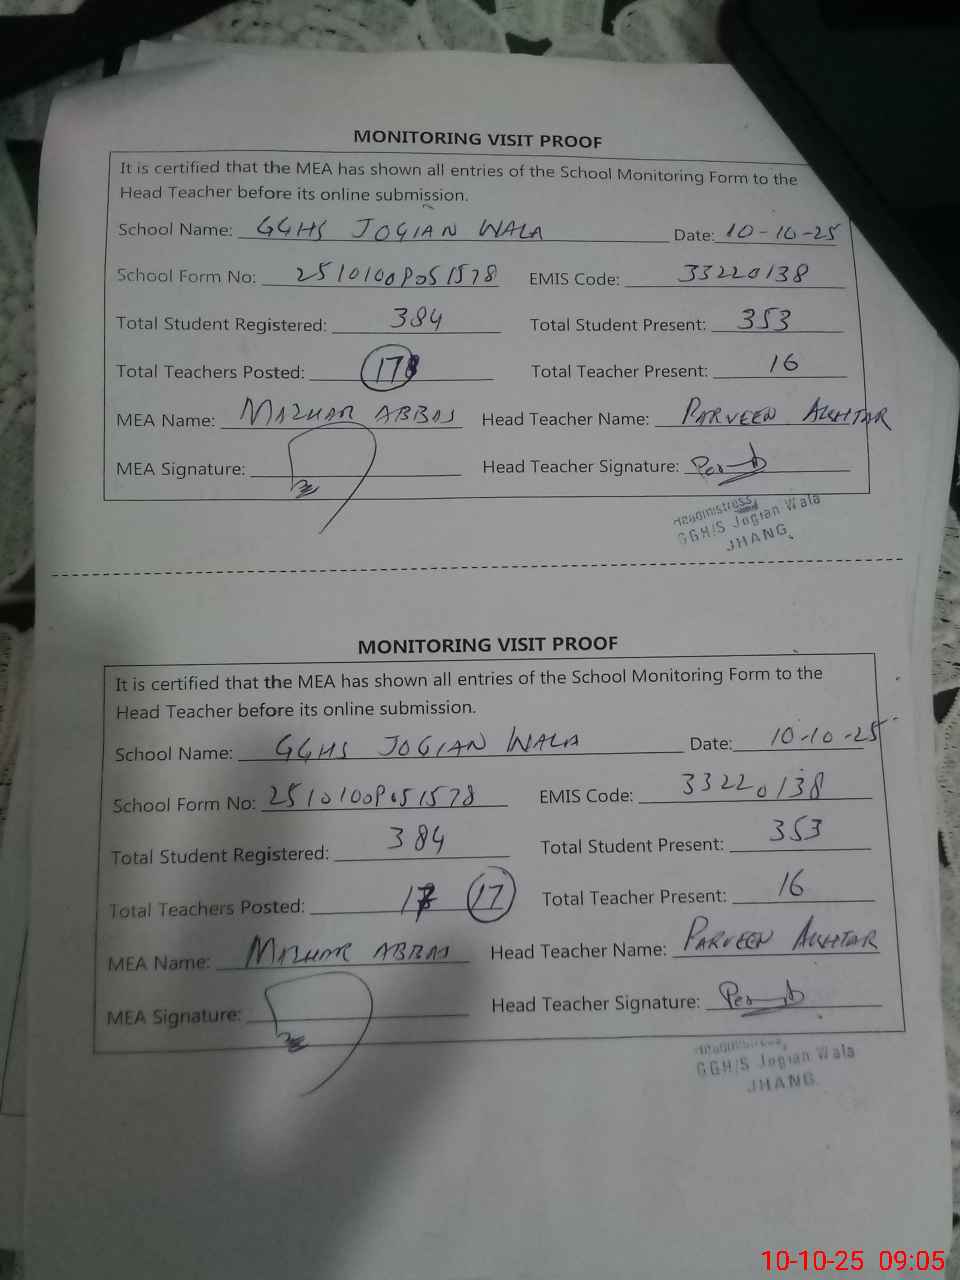 MONITORING VISIT PROOF
It is certified that the MEA has shown all entries of the School Monitoring Form to the
Head Teacher before its online submission.
School Name: GGHS JOGIAN WALA Date: 10-10-25
School Form No: 2510100P051578 EMIS Code: 33220138
Total Student Registered: 384 Total Student Present: 353
Total Teachers Posted: 17 Total Teacher Present: 16
MEA Name: MAZHAR ABBAS Head Teacher Name: PARVEEN AKHTAR
MEA Signature: Head Teacher Signature:
Headmistress
GGH/S Jogian Wala
JHANG
MONITORING VISIT PROOF
It is certified that the MEA has shown all entries of the School Monitoring Form to the
Head Teacher before its online submission.
School Name: GGHS JOGIAN WALA Date: 10-10-25
School Form No: 2510100P051578 EMIS Code: 33220138
Total Student Registered: 384 Total Student Present: 353
Total Teachers Posted: 17 Total Teacher Present: 16
MEA Name: MAZHAR ABBAS Head Teacher Name: PARVEEN AKHTAR
MEA Signature: Head Teacher Signature:
Headmistress
GGH/S Jogian Wala
JHANG
10-10-25 09:05